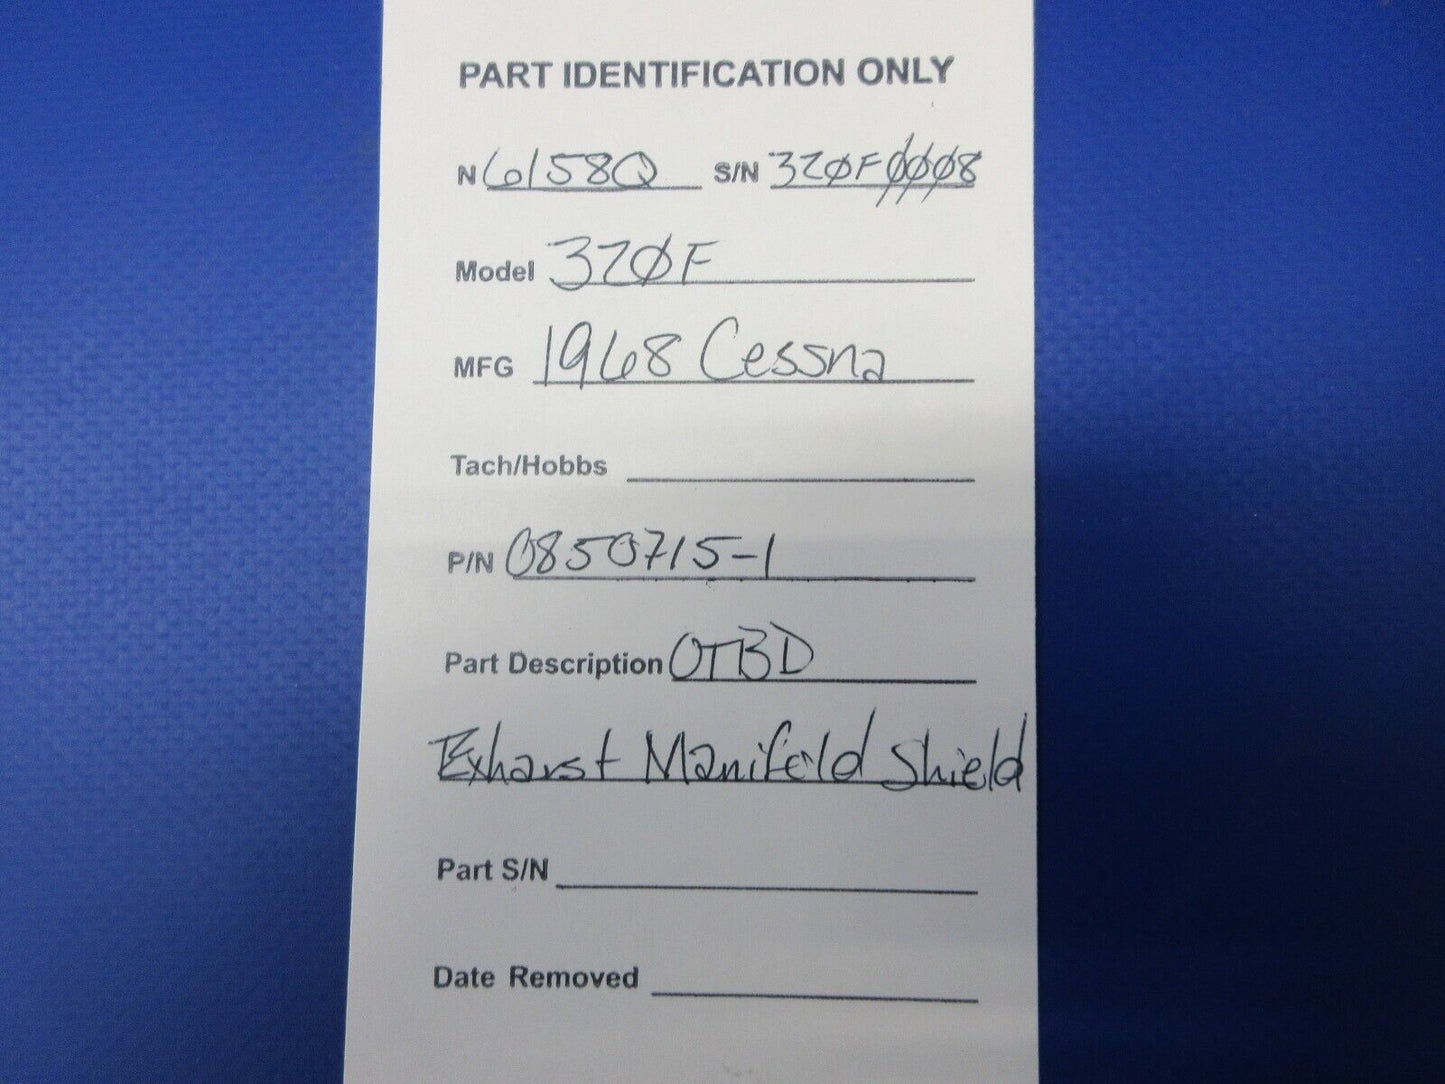 PART IDENTIFICATION ONLY
N 6158Q S/N 320F0008
Model 320F
MFG 1968 Cessna
Tach/Hobbs
P/N 0850715-1
Part Description OTBD
Exhaust Manifold Shield
Part S/N
Date Removed